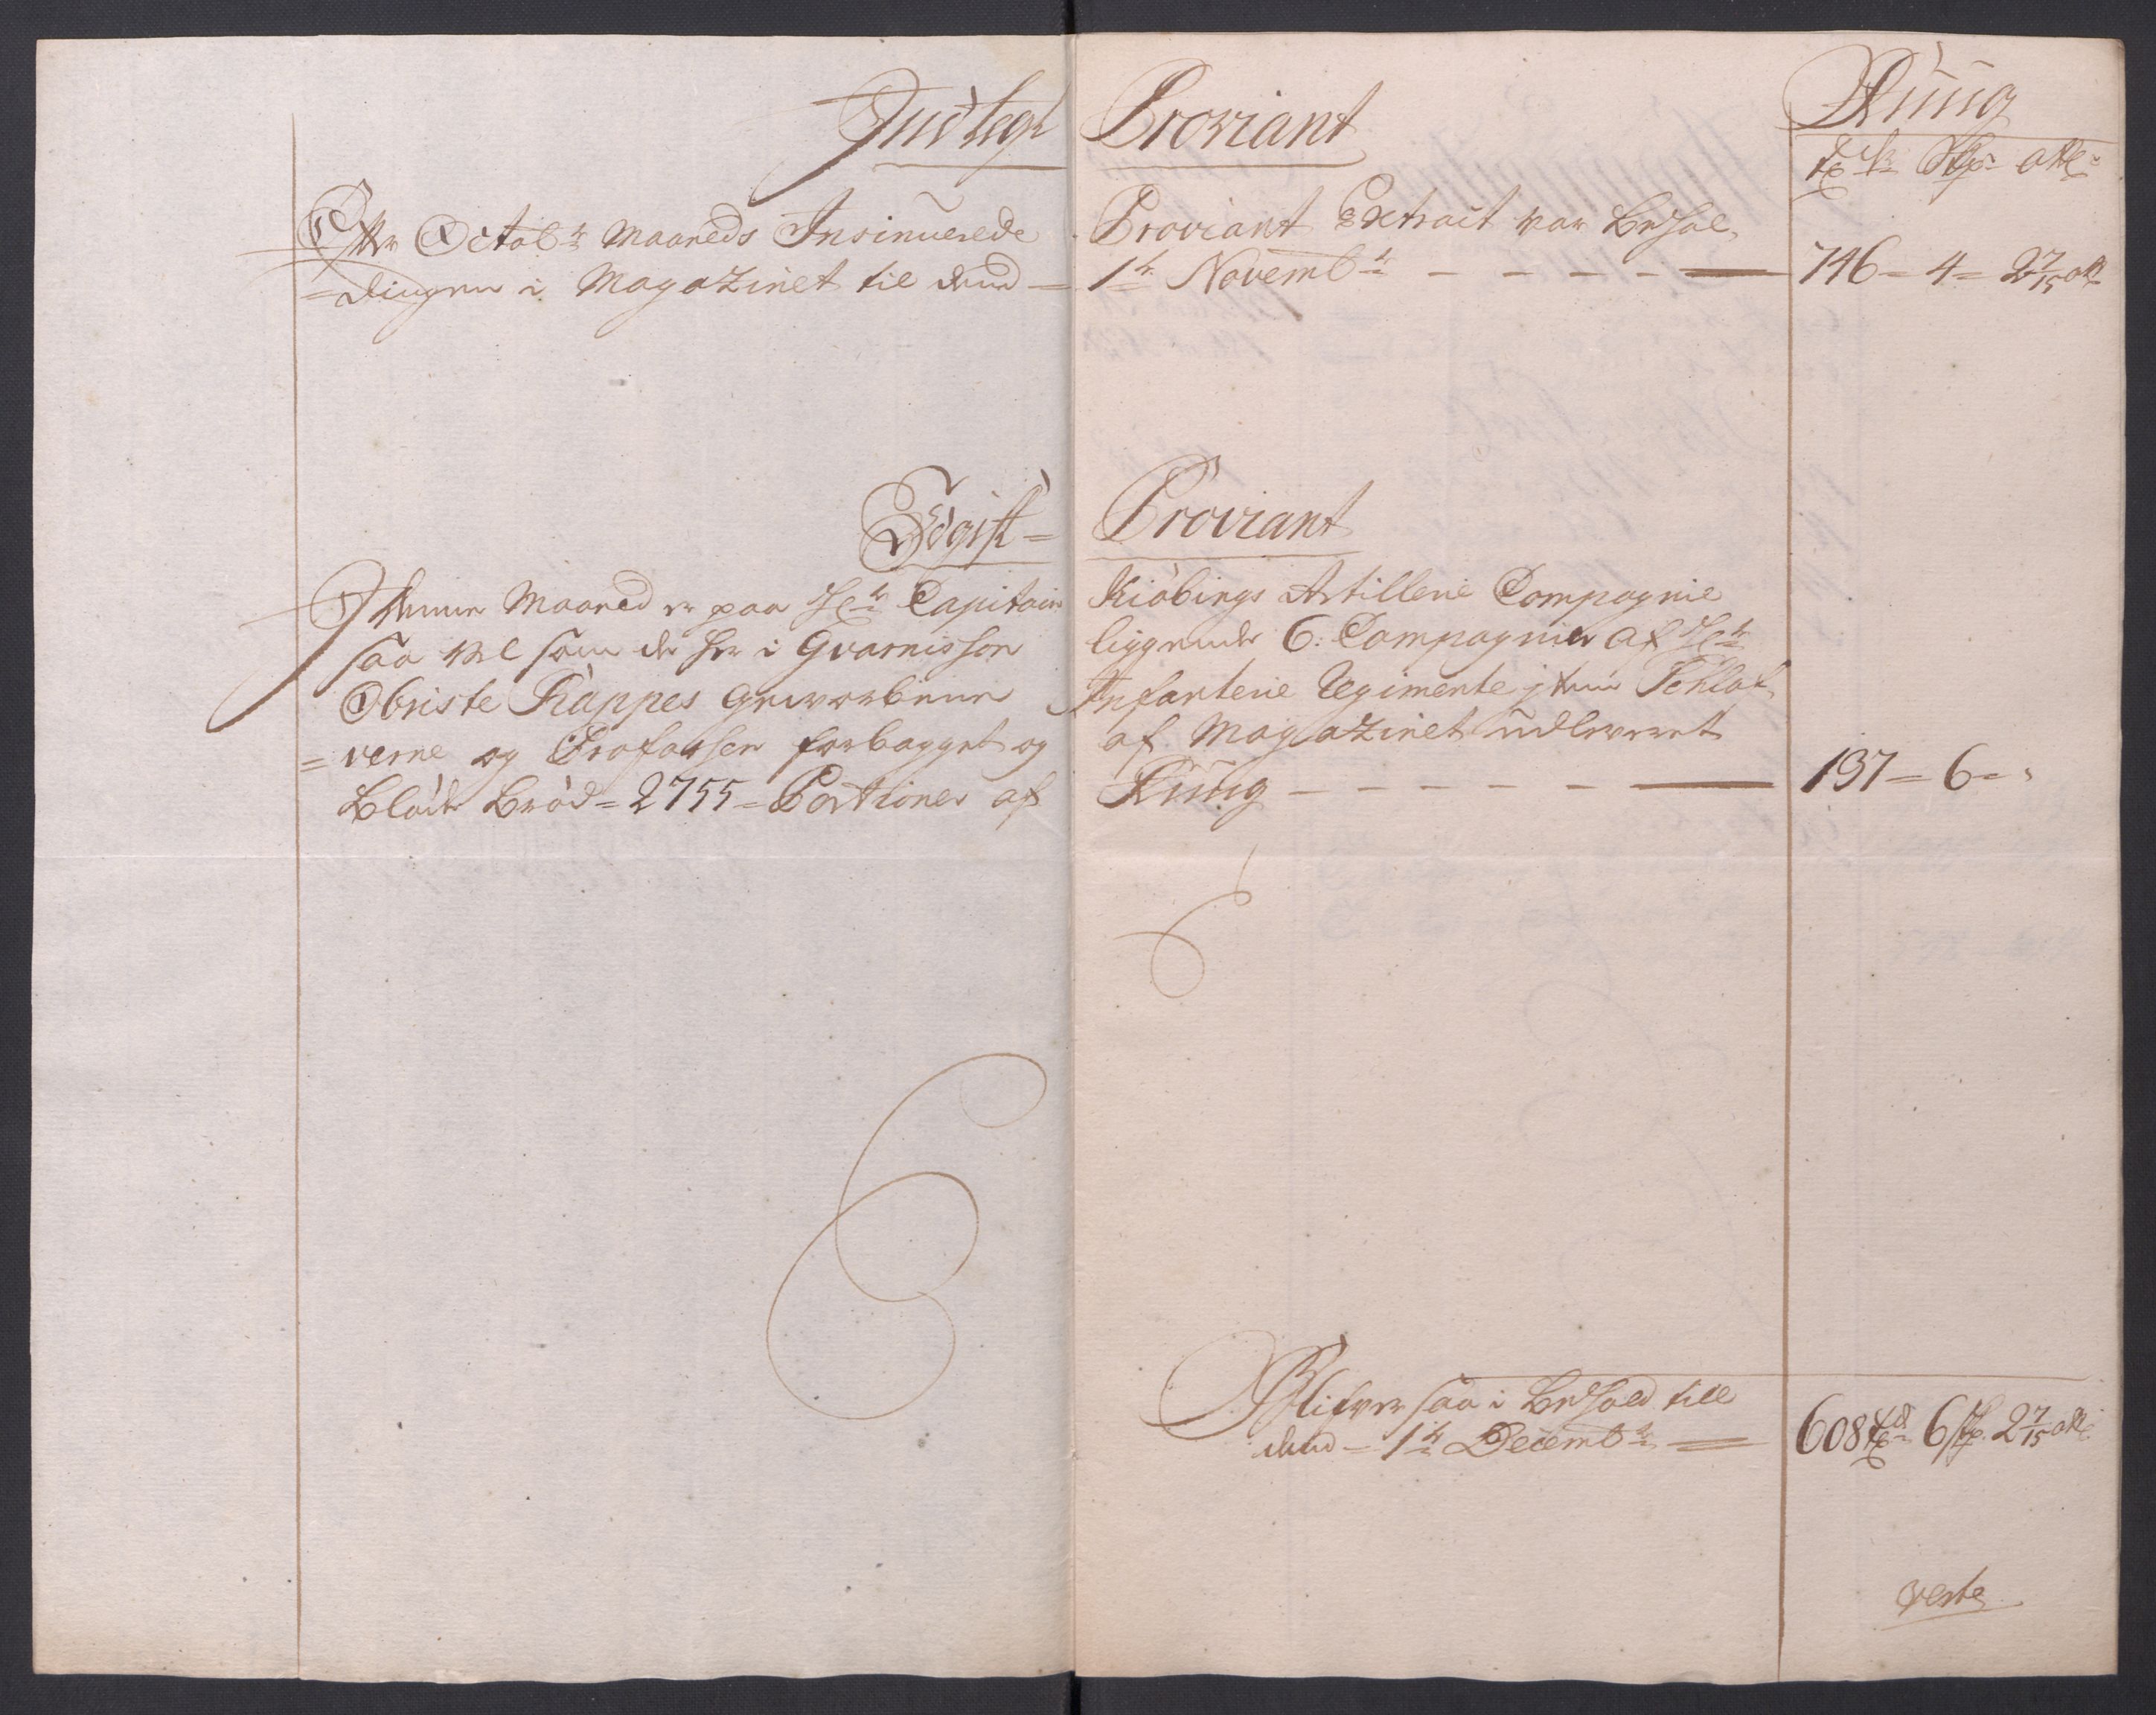 Indtegt Proviant
Ruug
Tdr Skpr ottl
Efter Octobr Maaneds Insinuerede Proviant Extrait var behol-
=dingen i Magazinet til dend = 1te Novembr — — — — 746 = 4 = 2 7/15 ott
Udgift = Proviant
I denne Maaned er paa Hr Capitain Kiøbings Artillerie Compagnie
saa vel som de her i Gvarnisson liggende 6: Compagnier af Hr
Obriste Kappes gevorbene Infanterie Regimente item Schlaf-
=verne og Profossen forbagget og af Magazinet udleveret
Bløde Brød = 2755 = Portioner af Ruug — — — — — 137 = 6 = "
Blifver saa i behold till
dend = 1te Decembr = 608 tdr 6 skp 2 7/15 ottl
verte